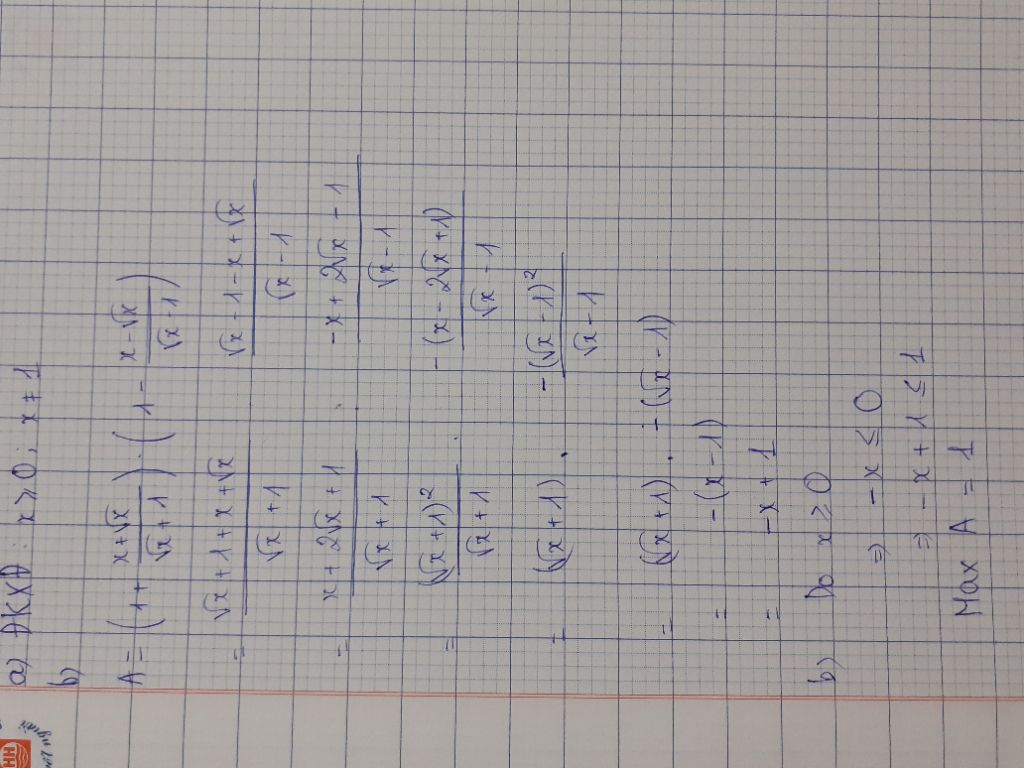 a) ĐKXĐ : x ≥ 0 ; x ≠ 1
b)
A = (1 + (x+√x)/(√x+1)) . (1 - (x-√x)/(√x-1))
= (√x+1+x+√x)/(√x+1) . (√x-1-x+√x)/(√x-1)
= (x+2√x+1)/(√x+1) . (-x+2√x-1)/(√x-1)
= (√x+1)²/(√x+1) . -(x-2√x+1)/(√x-1)
= (√x+1) . -(√x-1)²/(√x-1)
= (√x+1) . -(√x-1)
= -(x-1)
= -x+1
b) Do x ≥ 0
⇒ -x ≤ 0
⇒ -x+1 ≤ 1
Max A = 1
HH